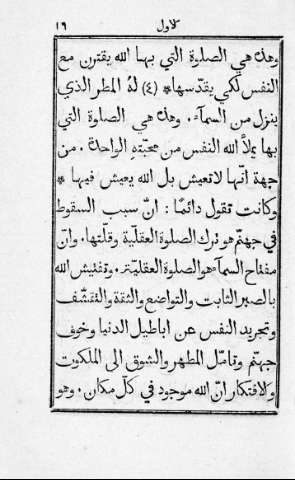 الاول ١٦
وهذه هي الصلوة التي بها الله يقترن مع
النفس لكي يقدّسها* (٤) لهُ المطر الذي
ينزل من السمآء. وهذه هي الصلوة التي
بها يملأ الله النفس من محبّتهِ الواحدة. من
جهة انّها لا تعيش بل الله يعيش فيها *
وكانت تقول دائمًا: انّ سبب السقوط
في جهنّم هو ترك الصلوة العقلية وقلّتها. وانّ
مفتاح السمآ هو الصلوة العقليّة. وتفتيش الله
بالصبر الثابت والتواضع والثقة والتقشّف
وتجريد النفس عن اباطيل الدنيا وخوف
جهنّم وتامّل المطهر والشوق الى الملكوت
والافتكار انّ الله موجود في كلّ مكان. وهو